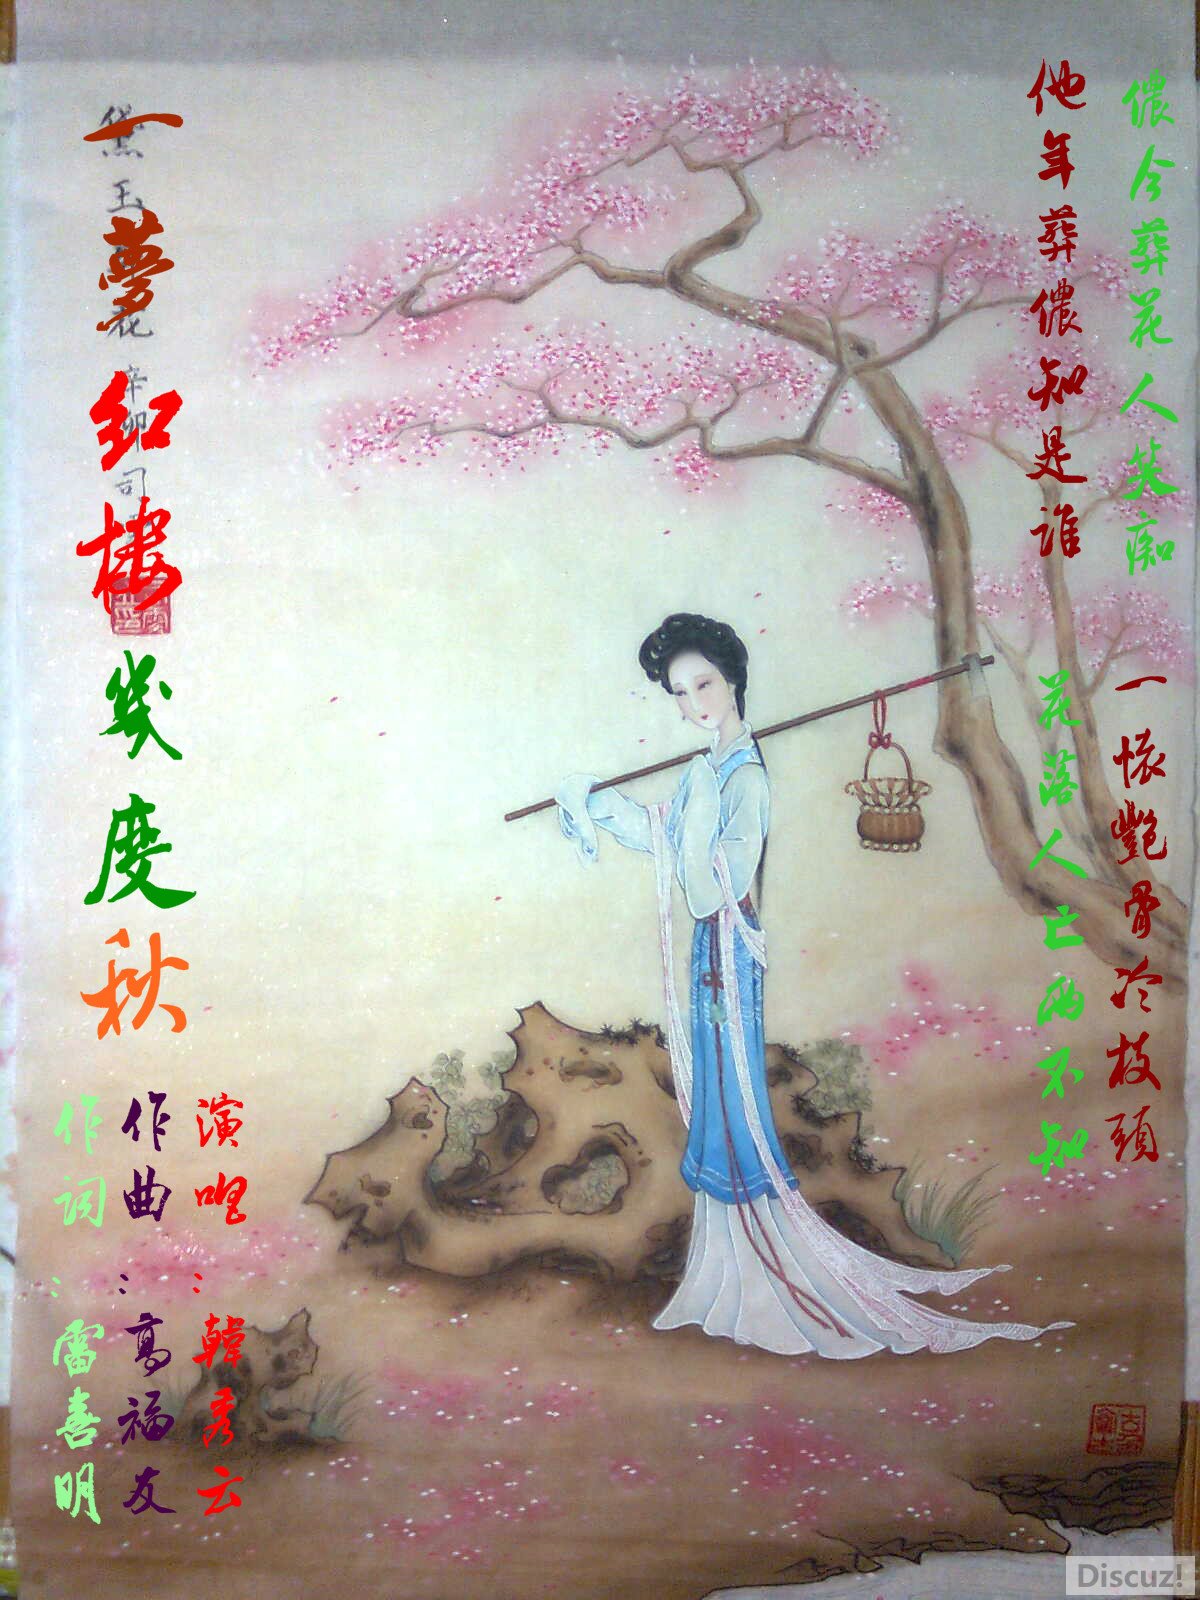 儂今葬花人笑痴
他年葬儂知是谁
一懷艷骨冷枝頭
花落人亡两不知
一夢红樓幾度秋
黛玉花辛卯司
演唱：韓秀云
作曲：高福友
作词：雷喜明
Discuz!